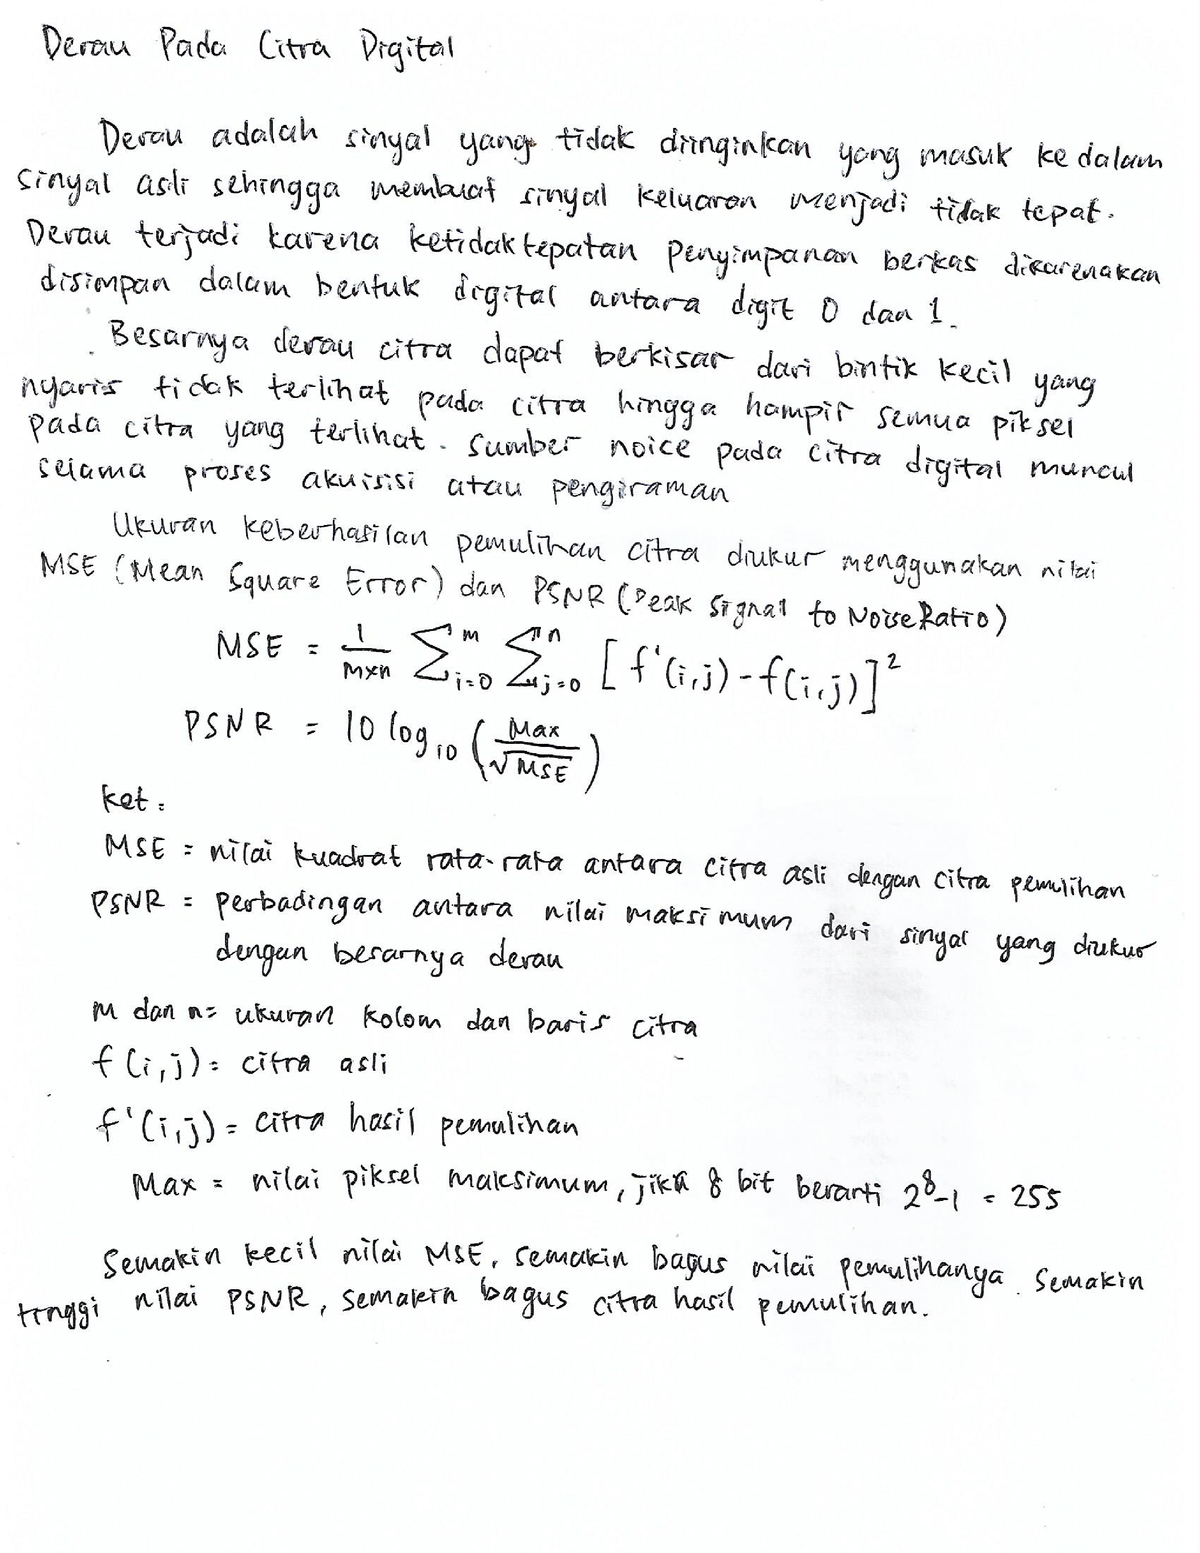 Derau Pada Citra Digital
Derau adalah sinyal yang tidak diinginkan yang masuk ke dalam
sinyal asli sehingga membuat sinyal keluaran menjadi tidak tepat.
Derau terjadi karena ketidaktepatan penyimpanan berkas dikarenakan
disimpan dalam bentuk digital antara digit 0 dan 1.
Besarnya derau citra dapat berkisar dari bintik kecil yang
nyaris tidak terlihat pada citra hingga hampir semua piksel
pada citra yang terlihat. Sumber noice pada citra digital muncul
selama proses akuisisi atau pengiraman
Ukuran keberhasilan pemulihan citra diukur menggunakan nilai
MSE (Mean Square Error) dan PSNR (Peak Signal to Noise Ratio)
MSE = \frac{1}{m×n} \sum_{i=0}^{m} \sum_{j=0}^{n} [f'(i,j) - f(i,j)]^2
PSNR = 10 log_{10} (\frac{Max}{\sqrt{MSE}})
ket :
MSE = nilai kuadrat rata-rata antara citra asli dengan citra pemulihan
PSNR = perbadingan antara nilai maksimum dari sinyal yang diukur
dengan besarnya derau
m dan n = ukuran kolom dan baris citra
f(i,j) = citra asli
f'(i,j) = citra hasil pemulihan
Max = nilai piksel maksimum, jika 8 bit berarti 2^8-1 = 255
Semakin kecil nilai MSE, semakin bagus nilai pemulihanya. Semakin
tinggi nilai PSNR, semakin bagus citra hasil pemulihan.